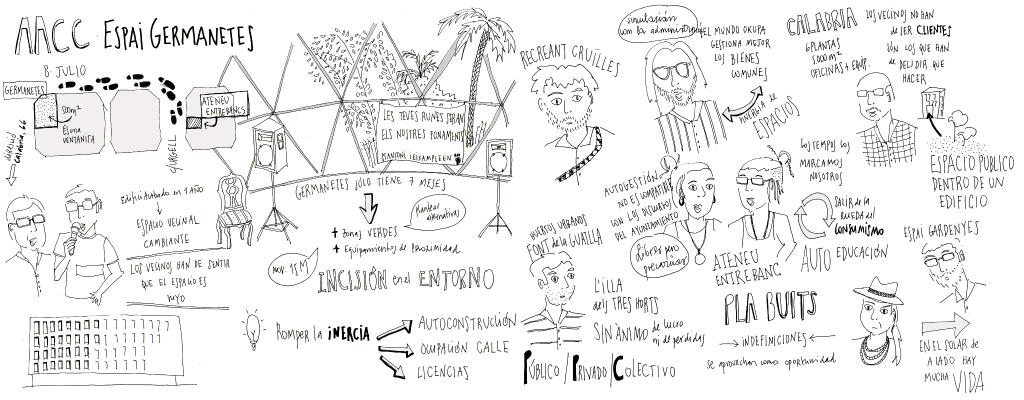 AACC ESPAI GERMANETES
8 JULIO
GERMANETES
500m²
ATENEU
ENTREBANCS
C/URGELL
calabria, 66
Edificio Acabado en 1 AÑO
ESPACIO VECINAL
CAMBIANTE
LOS VECINOS HAN DE SENTIR
QUE EL ESPACIO ES
SUYO
LES TEVES RUNES SERAN
ELS NOSTRES FONAMENTS
GERMANETES SÓLO TIENE 7 MESES
Plantear
alternativas
+ zonas VERDES
+ Equipamientos de Proximidad
mov. 15M
INCISIÓN en el ENTORNO
Romper la iNERCIA
AUTOCONSTRUCIÓN
OCUPACIÓN CALLE
LICENCIAS
RECREANT CRUÏLLES
simulación
con la administración
EL MUNDO OKUPA
GESTIONA MEJOR
LOS BIENES
COMUNES
ESPACIOS
CALABRIA
6 PLANTAS
5000m²
OFICINAS + EQUIP.
LOS VECINOS NO HAN
de SER CLIENTES
SON LOS QUE HAN
DE DECIDIR QUE
HACER
ESPACIO PÚBLICO
DENTRO DE UN
EDIFICIO
AUTOGESTIÓN
NO ES COMPATIBLE
CON LOS USUARIOS
DEL AYUNTAMIENTO
Libres pero
precarios
LOS TEMPOS LOS
MARCAMOS
NOSOTROS
SALIR DE LA
RUEDA DEL
CONSUMISMO
ATENEU
ENTREBANC
AUTO EDUCACIÓN
HUERTOS URBANOS
FONT de la GUATLLA
L'ILLA
dels TRES HORTS
SIN ÁNIMO de lucro
ni de pérdidas
PÚBLICO / PRIVADO / COLECTIVO
PLA BUITS
INDEFINICIONES
se aprovechan como oportunidad
ESPAI GARDENYES
EN EL SOLAR de
A LADO HAY
MUCHA VIDA